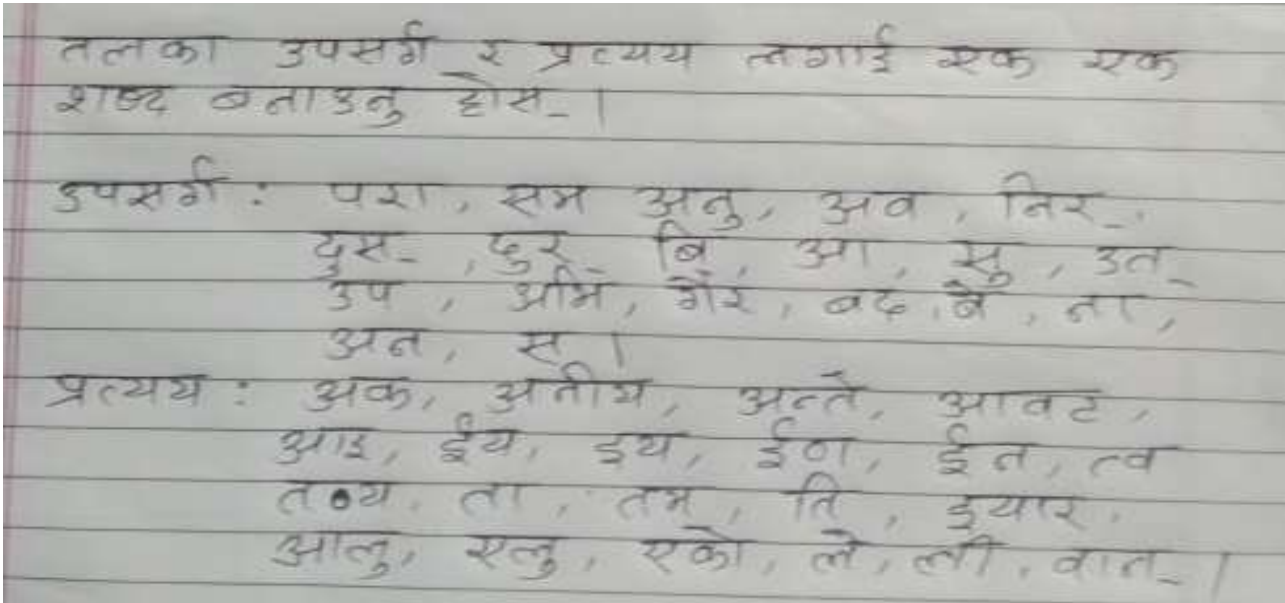 तलका उपसर्ग र प्रत्यय लगाई एक एक
शब्द बनाउनु होस् ।
उपसर्ग : परा, सम अनु, अव, निर्,
दुस्, दुर् बि, आ, सु, उत्
उप, अभि, गैर, बद, बे, ना,
अन, स ।
प्रत्यय : अक, अनीय, अन्ते, आवट,
आइ, ईय, इय, ईण, ईन, त्व
तव्य, ता, तम, ति, इयार,
आलु, एलु, एको, ले, ली, वान् ।